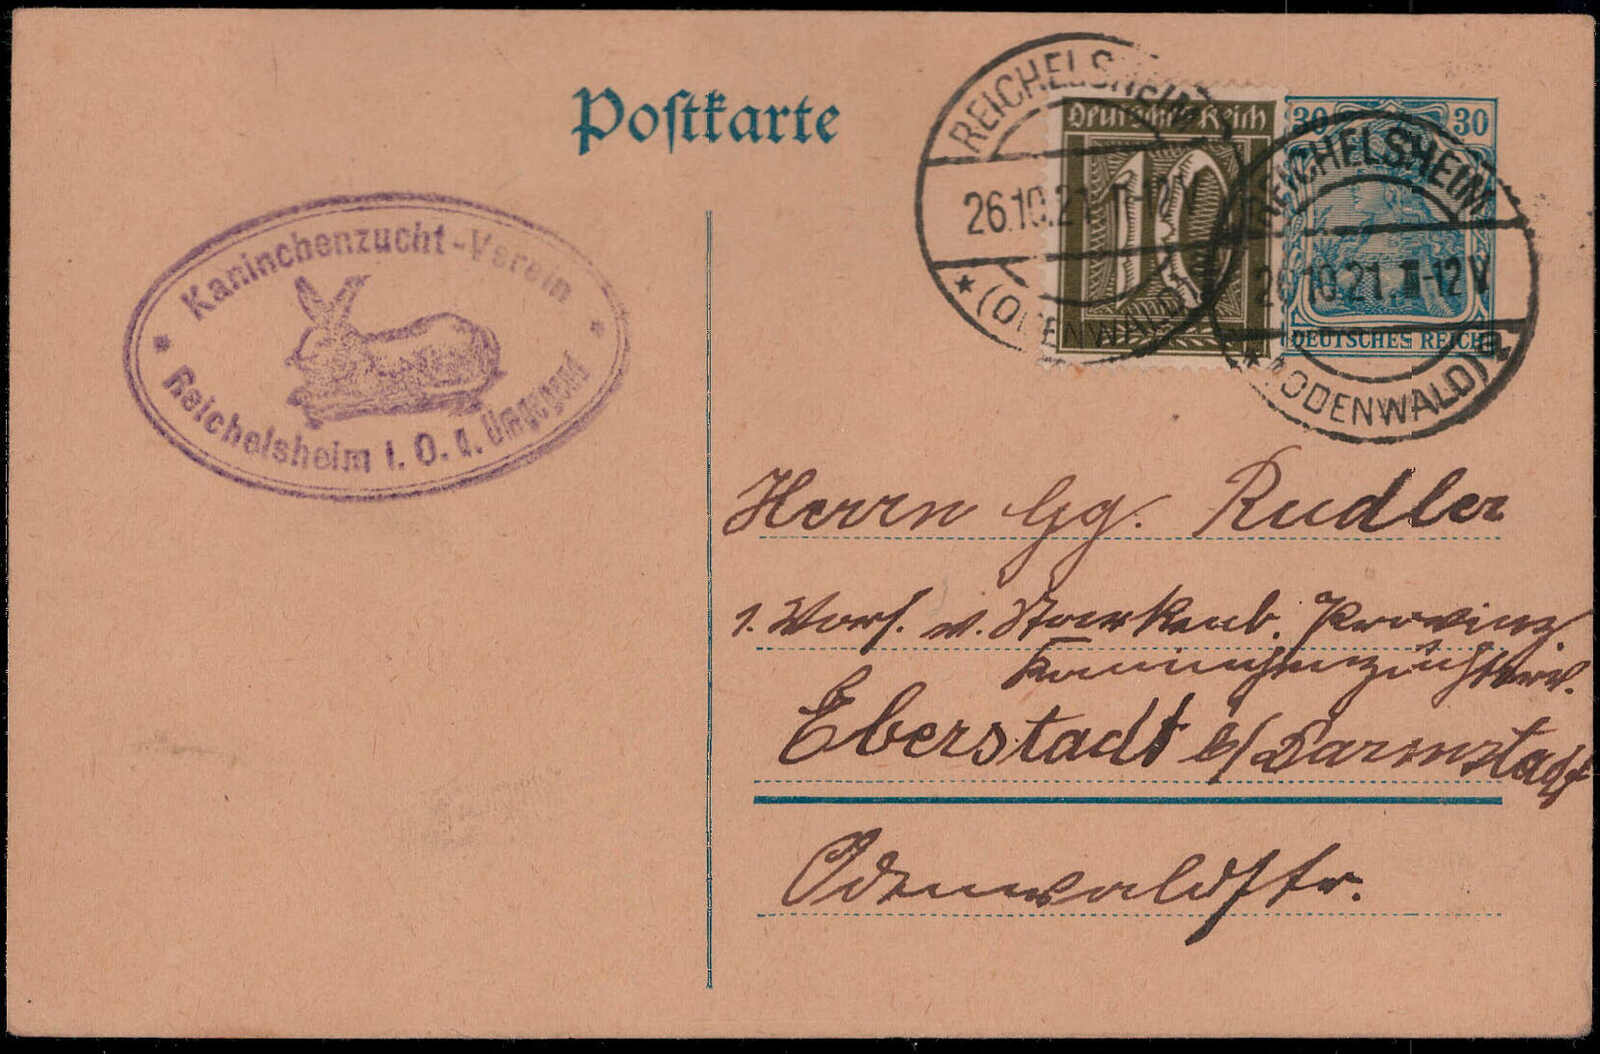 Postkarte
Kaninchenzucht-Verein
Reichelsheim i. O. u. Umgegend
REICHELSHEIM
26.10.21. 11-12 V
* (ODENWALD)
Deutsches Reich
10
30 30
DEUTSCHES REICH
REICHELSHEIM
26.10.21. 11-12 V
* (ODENWALD)
Herrn Gg. Rudler
1. Vors. v. Starkenb. Provinz
Kaninchenzüchterv.
Eberstadt b/Darmstadt
Odenwaldstr.